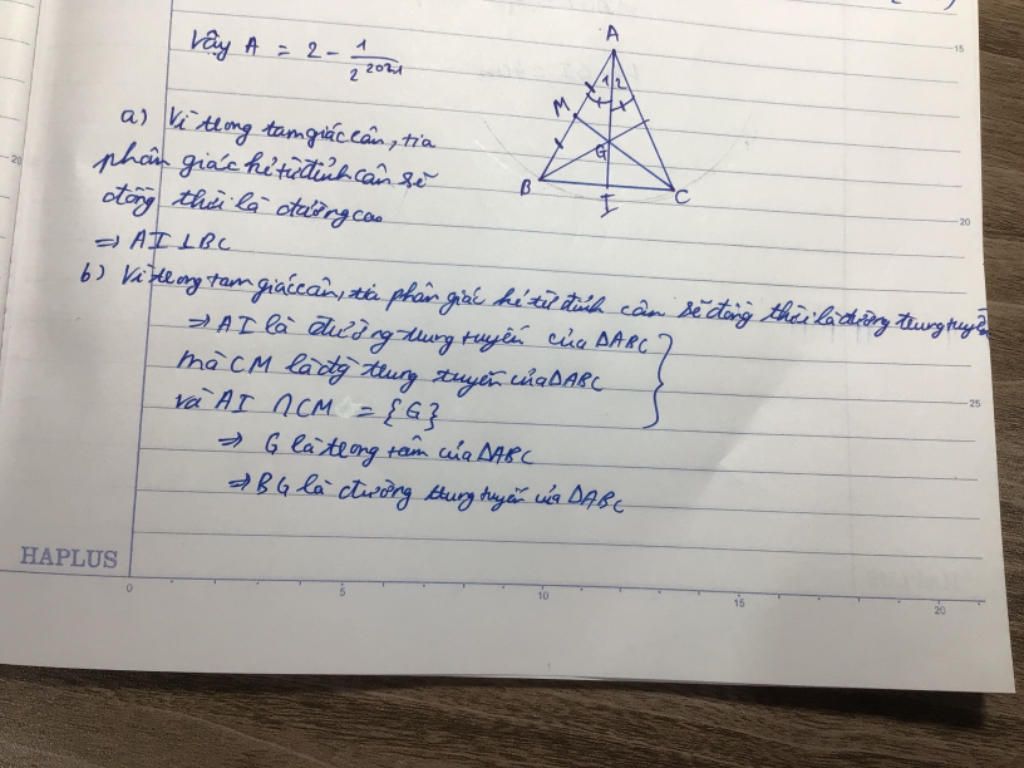 Vậy A = 2 - 1/2^2021
A
1 2
M
G
B
I
C
a) Vì trong tam giác cân, tia
phân giác kẻ từ đỉnh cân sẽ
đồng thời là đường cao
=> AI ⊥ BC
b) Vì trong tam giác cân, tia phân giác kẻ từ đỉnh cân sẽ đồng thời là đường trung tuyến
=> AI là đường trung tuyến của ΔABC
mà CM là đg trung tuyến của ΔABC
và AI ∩ CM = {G}
=> G là trong tâm của ΔABC
=> BG là đường trung tuyến của ΔABC
HAPLUS
0 5 10 15 20
15
20
25
20